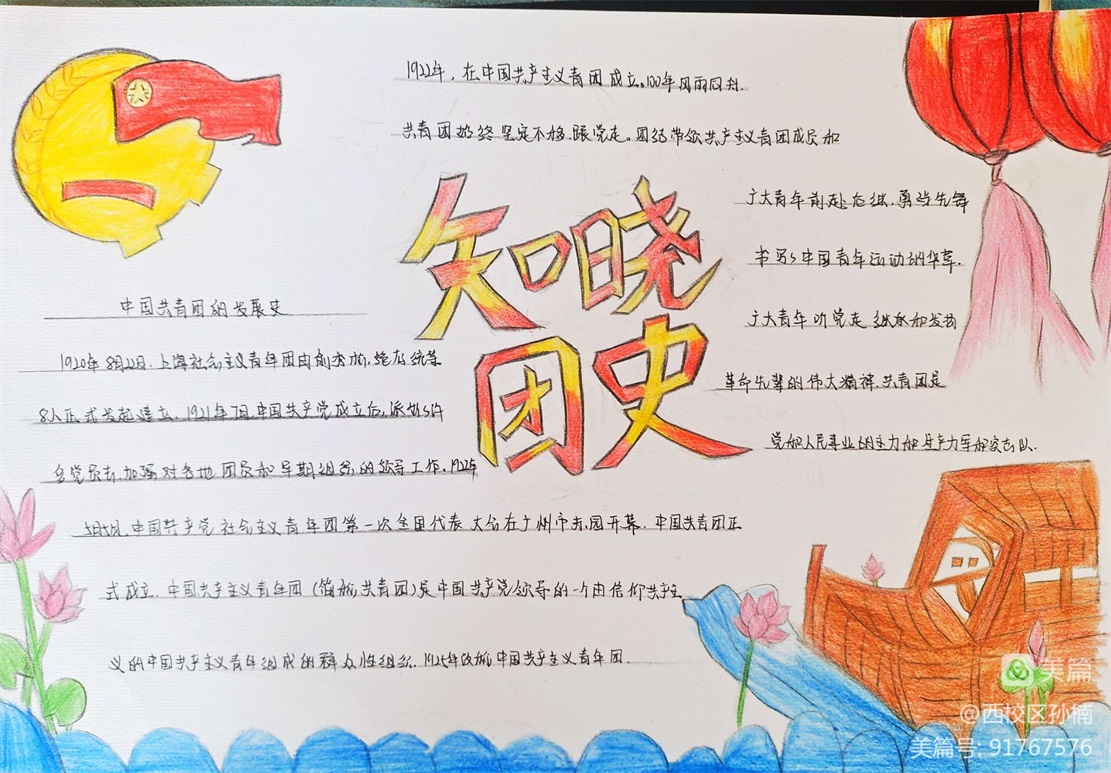 1922年，在中国共产主义青团成立。100年风雨同舟.
共青团始终坚定不移.跟党走。团结带领共产主义青团成员和
知晓
团史
广大青年前赴后继.勇当先锋
书写了中国青年运动的华章.
广大青年听党走 继承和发扬
革命先辈的伟大精神.共青团是
党和人民事业的主力和生力军和突击队.
中国共青团的发展史
1920年8月22日.上海社会主义青年团由俞秀松,施存统等
8人正式发起建立.1921年7月,中国共产党成立后,派出了许
多党员去,加强对各地团员和早期组织的领导工作.1922年
5月5日,中国共产党社会主义青年团第一次全国代表大会在广州市东园开幕.中国共青团正
式成立.中国共产主义青年团(简称共青团)是中国共产党领导的一个由信仰共产主
义的中国共产主义青年组成的群众性组织.1925年改称中国共产主义青年团.
美篇
@西校区孙楠
美篇号: 91767576